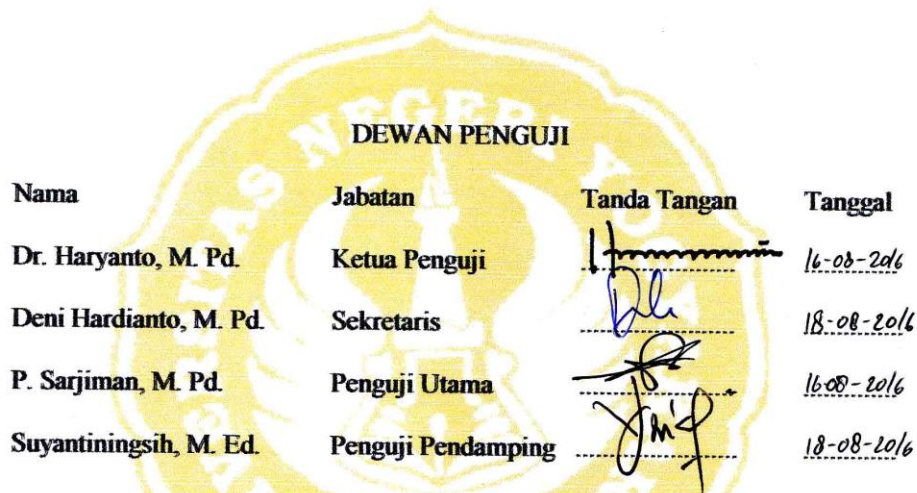 DEWAN PENGUJI
Nama Jabatan Tanda Tangan Tanggal
Dr. Haryanto, M. Pd. Ketua Penguji 16-08-2016
Deni Hardianto, M. Pd. Sekretaris 18-08-2016
P. Sarjiman, M. Pd. Penguji Utama 16-08-2016
Suyantiningsih, M. Ed. Penguji Pendamping 18-08-2016
NEGERI